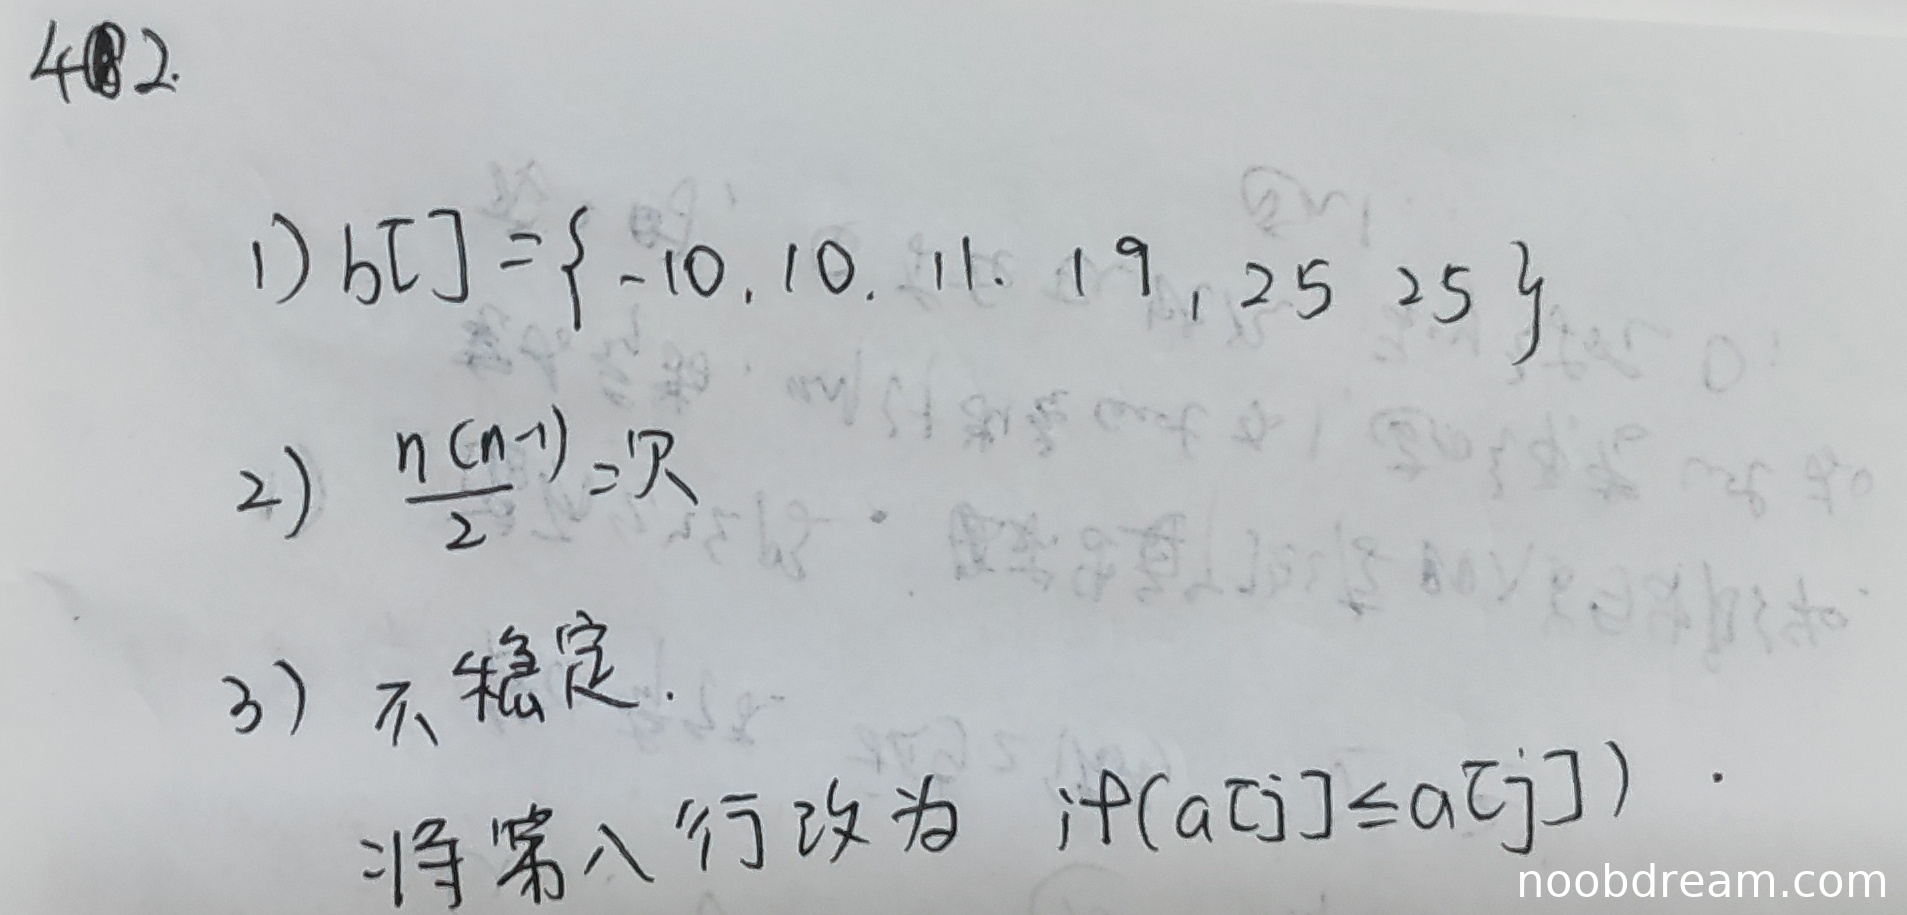 42.
1) b[ ] = { -10, 10. 11. 19, 25 25 }
2) n(n-1)/2 = 次
3) 不稳定.
将第八行改为 if(a[j]≤a[j]) .
noobdream.com